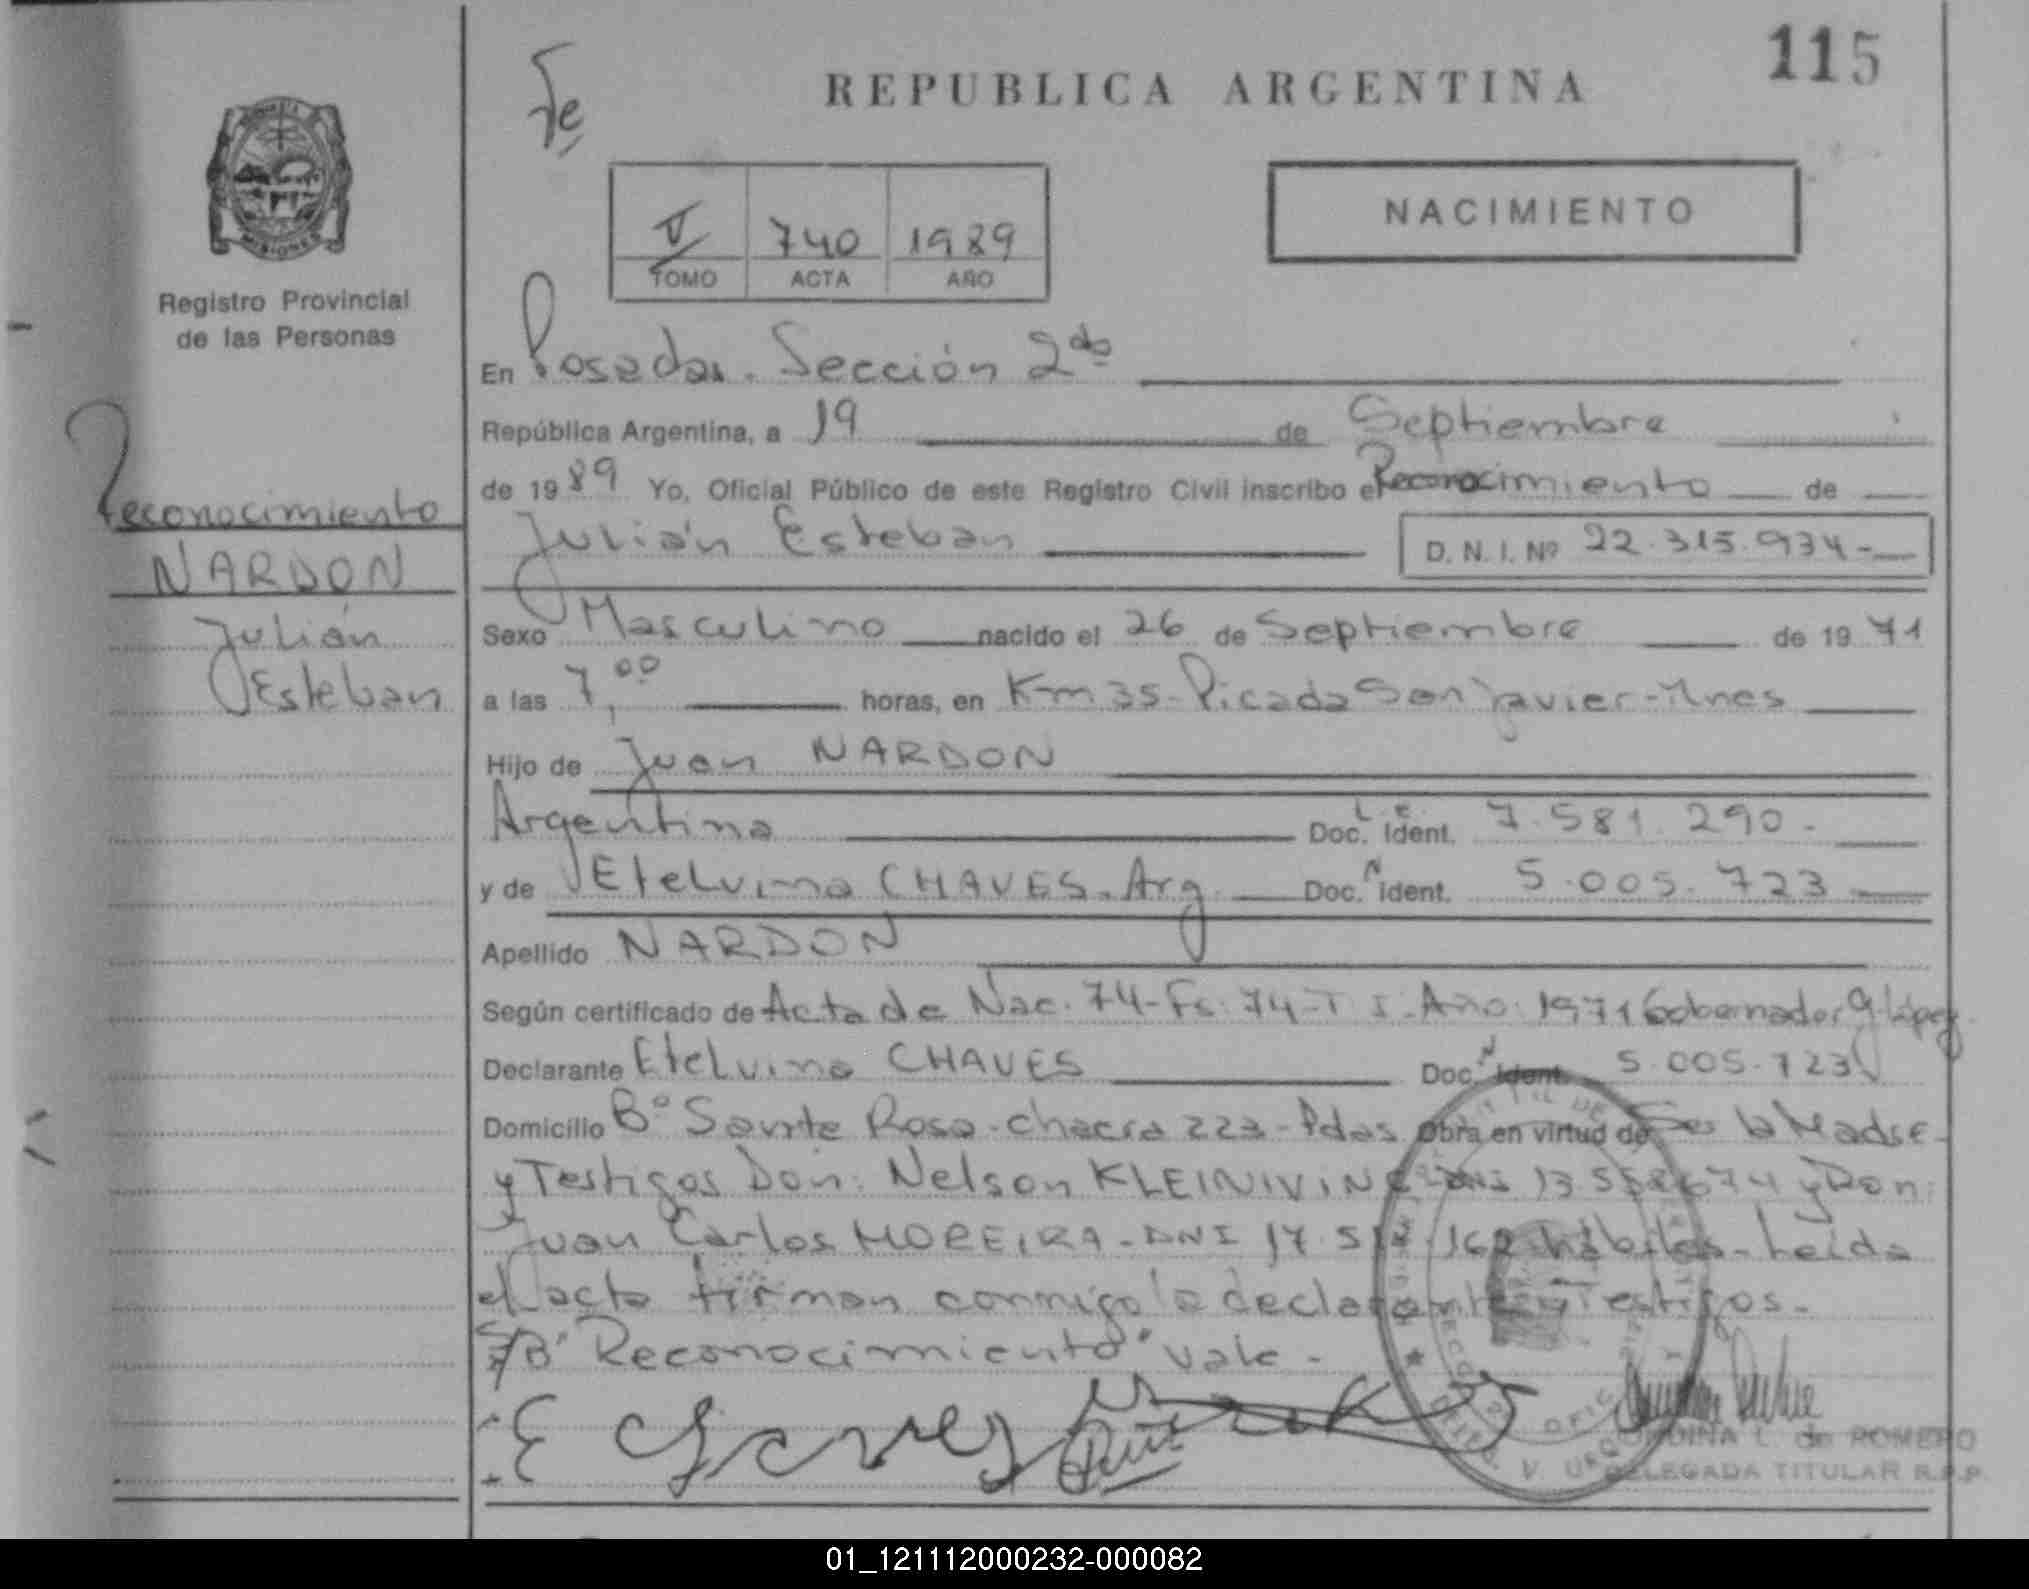 115
Fe
REPUBLICA ARGENTINA
MISIONES
V 740 1989
TOMO ACTA AÑO
NACIMIENTO
Registro Provincial
de las Personas
Reconocimiento
NARDON
Julián
Esteban
En Posadas. Sección 2da
República Argentina, a 19 de Septiembre
de 1989 Yo, Oficial Público de este Registro Civil inscribo el Reconocimiento de
Julián Esteban D. N. I. Nº 22.315.934-
Sexo Masculino nacido el 26 de Septiembre de 1971
a las 7,00 horas, en Km 35-Picada San Javier-Mnes
Hijo de Juan NARDON
Argentina Doc. Ident. L.E. 7.581.290-
y de Etelvina CHAVES. Arg. Doc. Ident. 5.005.723
Apellido NARDON
Según certificado de Acta de Nac. 74-Fs. 74-T I-Año 1971 Gobernador López
Declarante Etelvina CHAVES Doc. Ident. 5.005.723
Domicilio Bº Santa Rosa-chacra 223-Pdas Obra en virtud de Ser la Madre-
y Testigos Don: Nelson DNI y Don:
Juan Carlos MOREIRA-DNI hábiles-Leída
el acta firman conmigo la declarante y Testigos.
S/B "Reconocimiento" vale-
E Chaves
L. de ROMERO
DELEGADA TITULAR R.P.P.
01_121112000232-000082